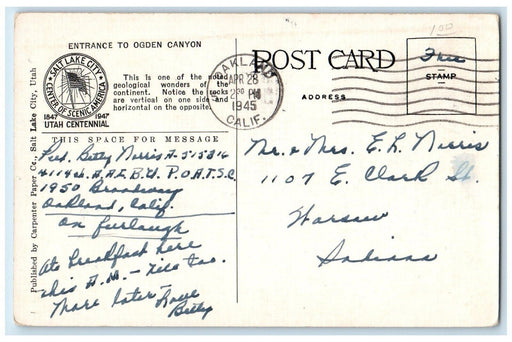 100
ENTRANCE TO OGDEN CANYON
SALT LAKE CITY
CENTER OF SCENIC AMERICA
1847 1947
UTAH CENTENNIAL
This is one of the noted
geological wonders of the
continent. Notice the rocks
are vertical on one side and
horizontal on the opposite.
OAKLAND
APR 28
2 PM
1945
CALIF.
POST CARD
ADDRESS
Free
STAMP
THIS SPACE FOR MESSAGE
Published by Carpenter Paper Co., Salt Lake City, Utah
Betty Norris A-515316
1950 Broadway
Oakland, Calif.
on furlough
Ate breakfast here
this A.M. - Nice too.
More later - Love
Betty
Mr. & Mrs. E. L. Norris
1107 E. Clark St.
Warsaw
Indiana